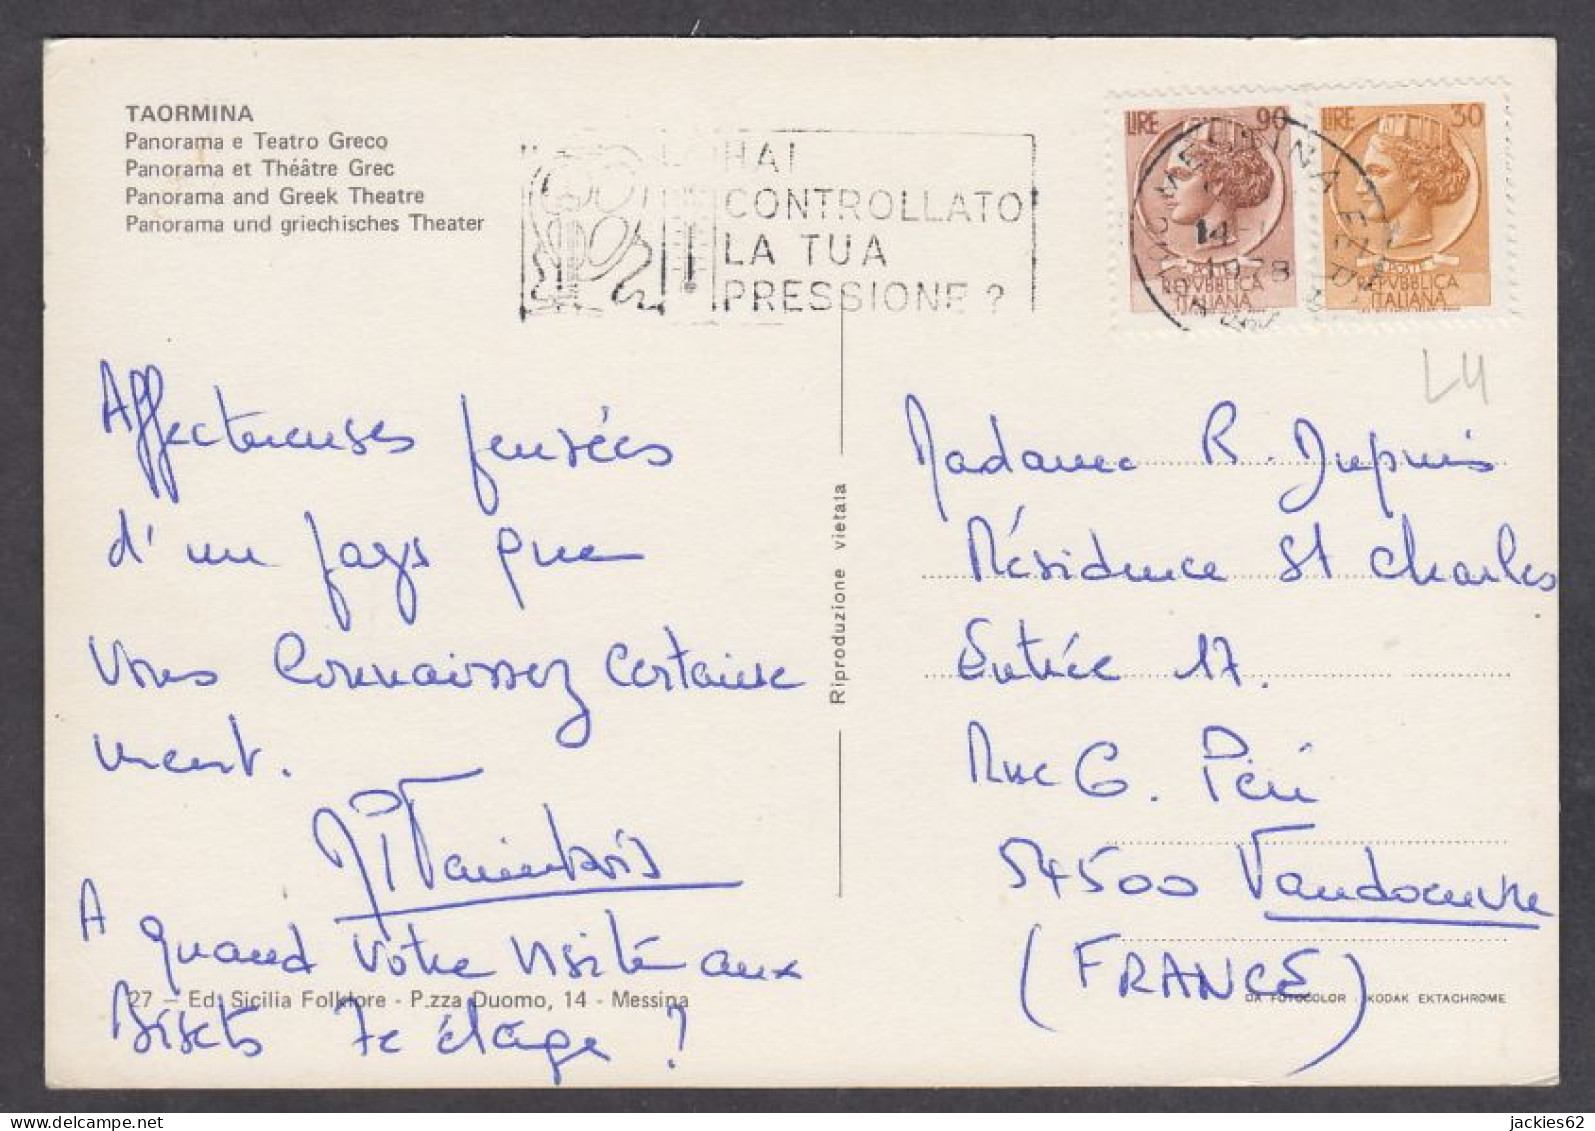 TAORMINA
Panorama e Teatro Greco
Panorama et Théâtre Grec
Panorama and Greek Theatre
Panorama und griechisches Theater
HAI
CONTROLLATO
LA TUA
PRESSIONE ?
LIRE 90
LIRE 30
MESSINA
14
POSTE
REPVBBLICA
ITALIANA
POSTE
REPVBBLICA
ITALIANA
L4
Affectueuses pensées
d'un pays que
vous connaissez certaine
ment.
A quand votre visite aux
Bisets 7e étage ?
Riproduzione vietata
Madame R. Dupuis
Résidence St Charles
Entrée 17.
Rue G. Péri
54500 Vandoeuvre
(FRANCE)
27 - Ed. Sicilia Folklore - P.zza Duomo, 14 - Messina
DA FOTOCOLOR KODAK EKTACHROME
jackies62